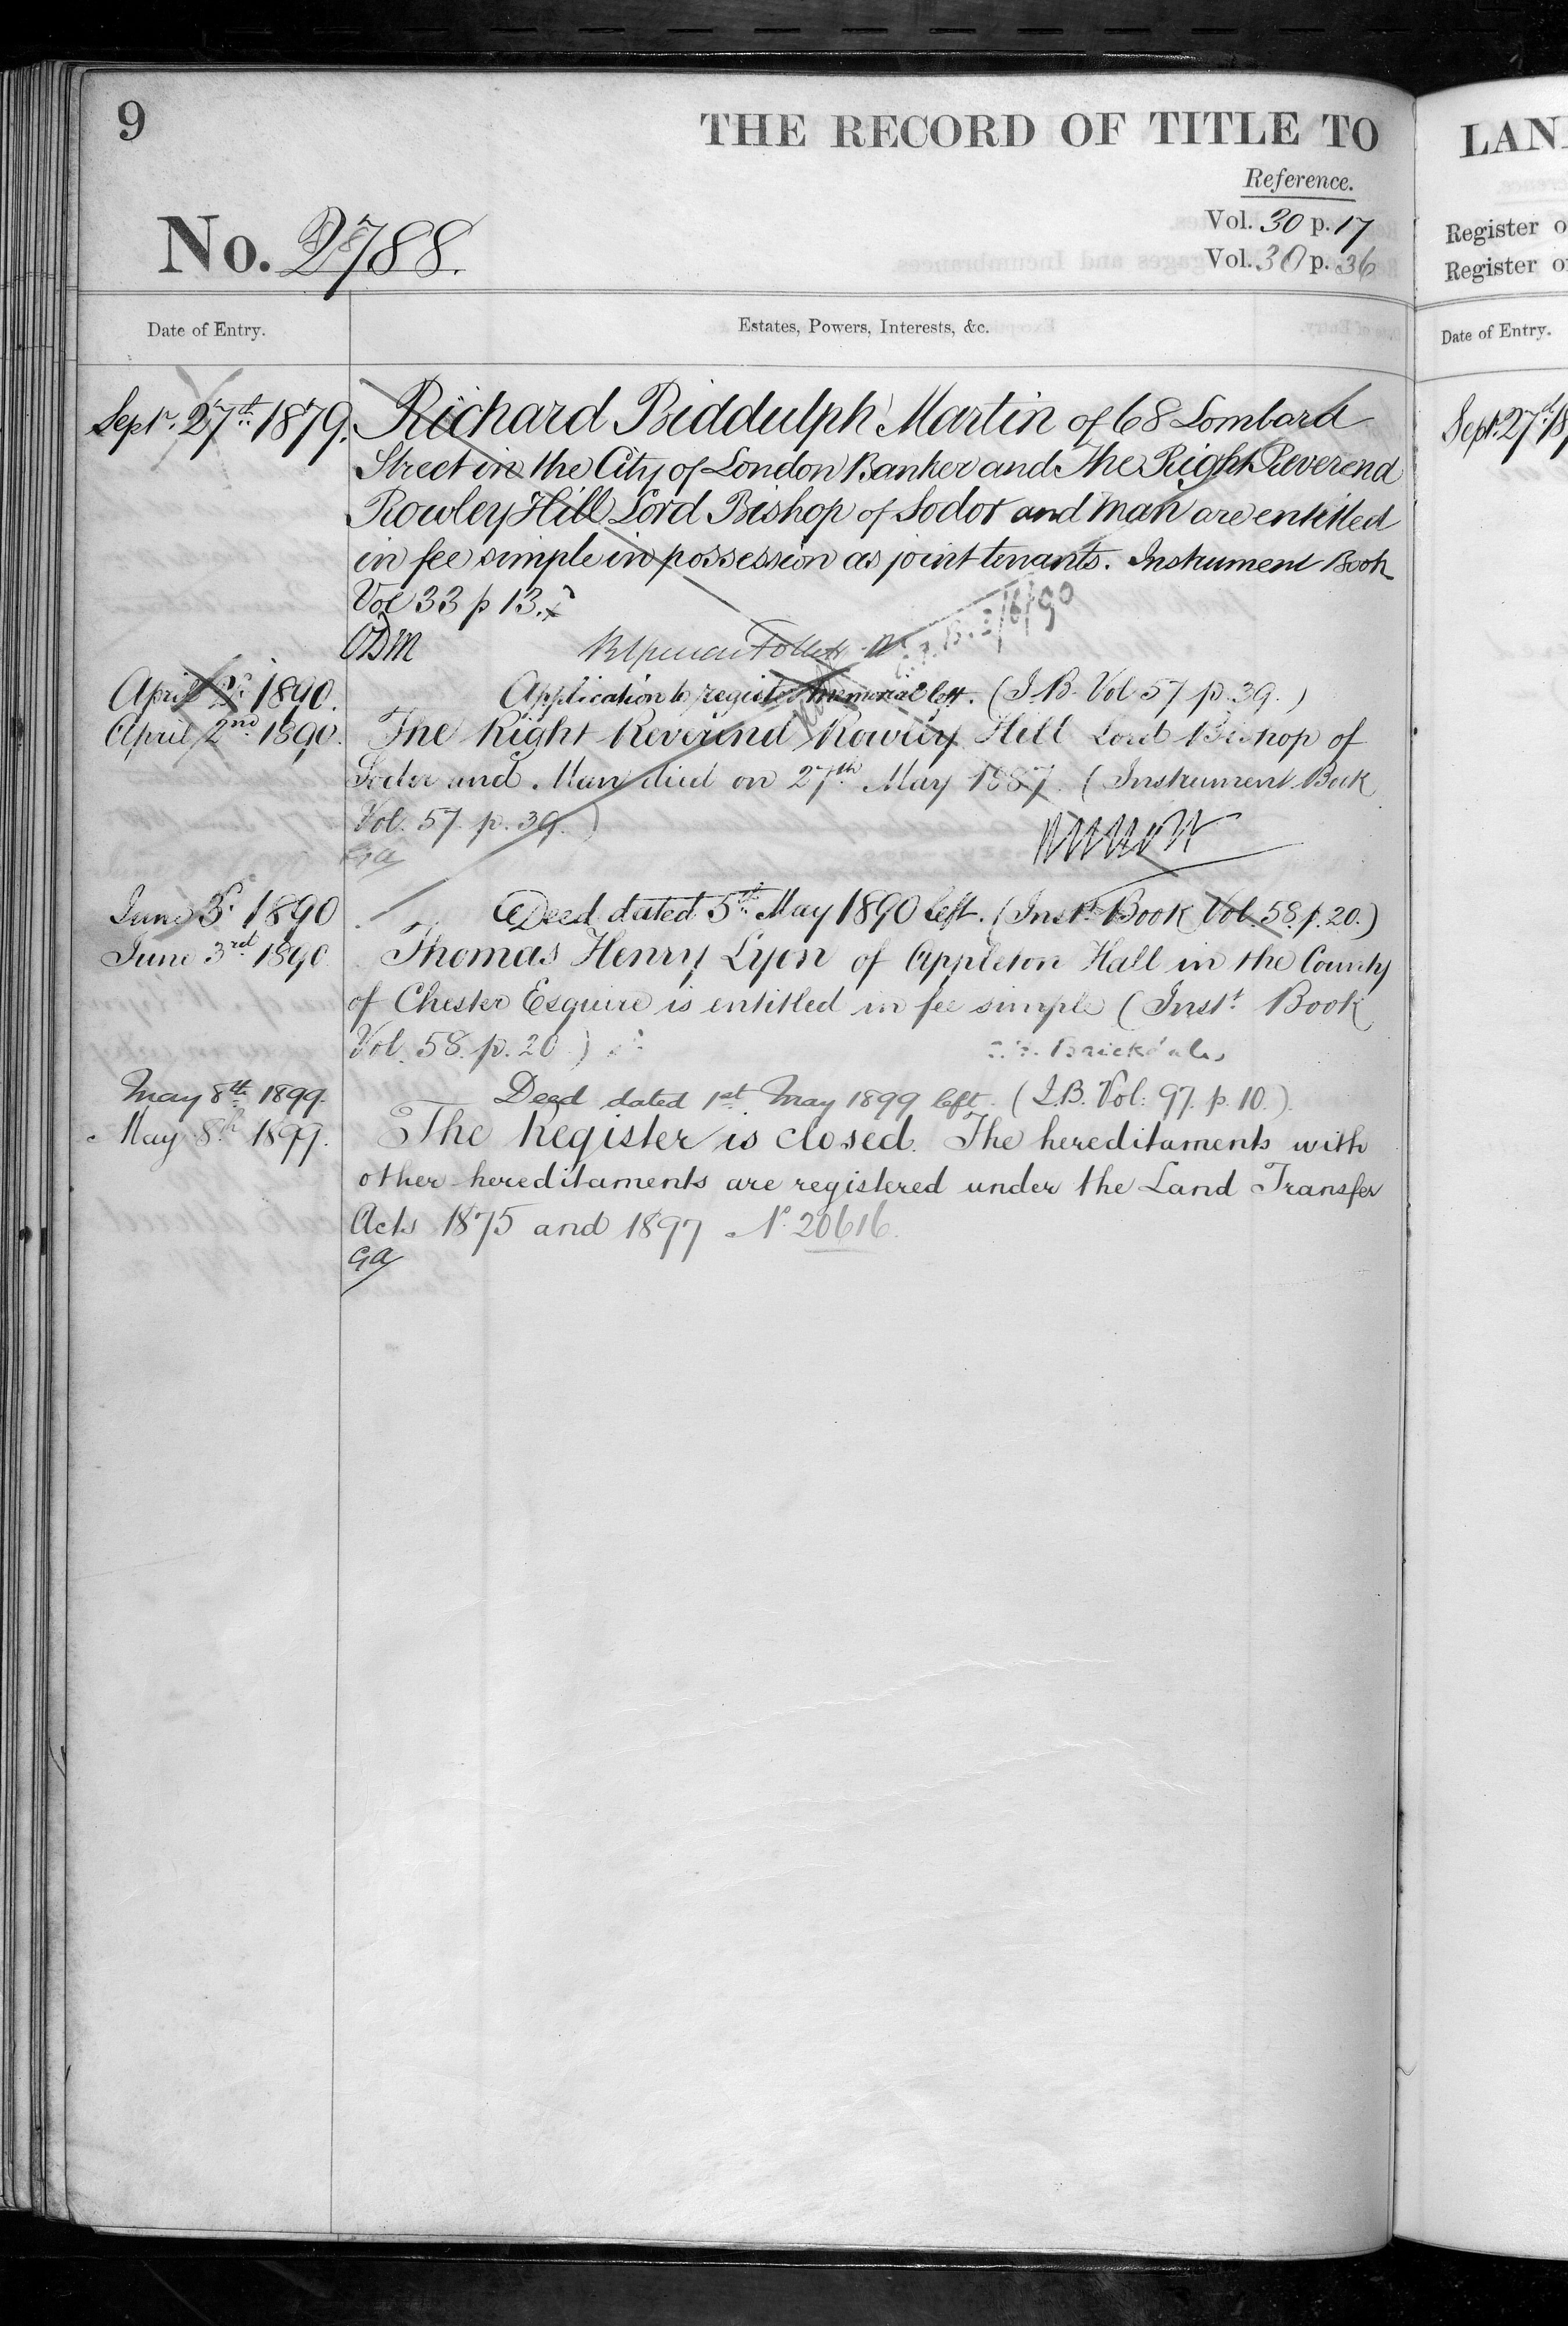 9
THE RECORD OF TITLE TO
Reference.
No. 2788.
Vol. 30 p. 17
Vol. 30 p. 36
Date of Entry.
Estates, Powers, Interests, &c.
Sept.r 27th 1879.
Richard Biddulph Martin of 68 Lombard
Street in the City of London Banker and The Right Reverend
Rowley Hill Lord Bishop of Sodor and Man are entitled
in fee simple in possession as joint tenants. Instrument Book
Vol 33 p 13.
ODM
2/6/90
April 2d 1890.
Application to register memorial left. (I.B. Vol 57 p. 39.)
April 2nd 1890.
The Right Reverend Rowley Hill Lord Bishop of
Sodor and Man died on 27th May 1887. (Instrument Book
Vol. 57. p. 39.)
GA
June 3d 1890
Deed dated 5th May 1890 left. (Inst. Book Vol. 58. p. 20.)
June 3rd 1890
Thomas Henry Lyon of Appleton Hall in the County
of Chester Esquire is entitled in fee simple (Inst. Book
Vol. 58. p. 20.)
Brickdale
May 8th 1899.
Deed dated 1st May 1899 left. (I.B. Vol: 97. p. 10.)
May 8th 1899.
The Register is closed. The hereditaments with
other hereditaments are registered under the Land Transfer
Acts 1875 and 1897 No. 20616.
GA
LAN
Register o
Register o
Date of Entry.
Sept. 27th 18